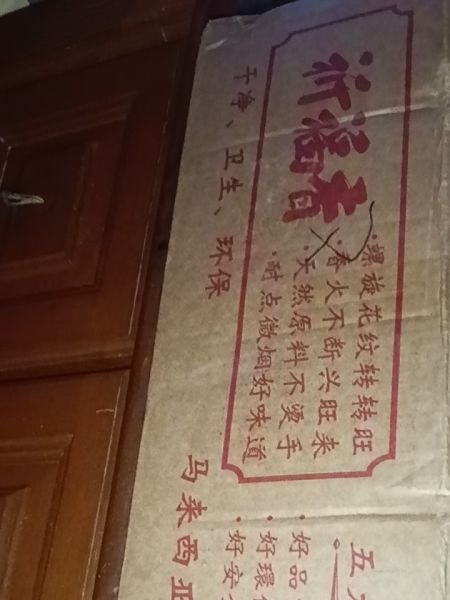 祈福香
·螺旋花纹转转旺
·香火不断兴旺来
·天然原料不烫手
·耐点微烟好味道
干净、卫生、环保
五
·好品
·好環
·好安
马来西亚